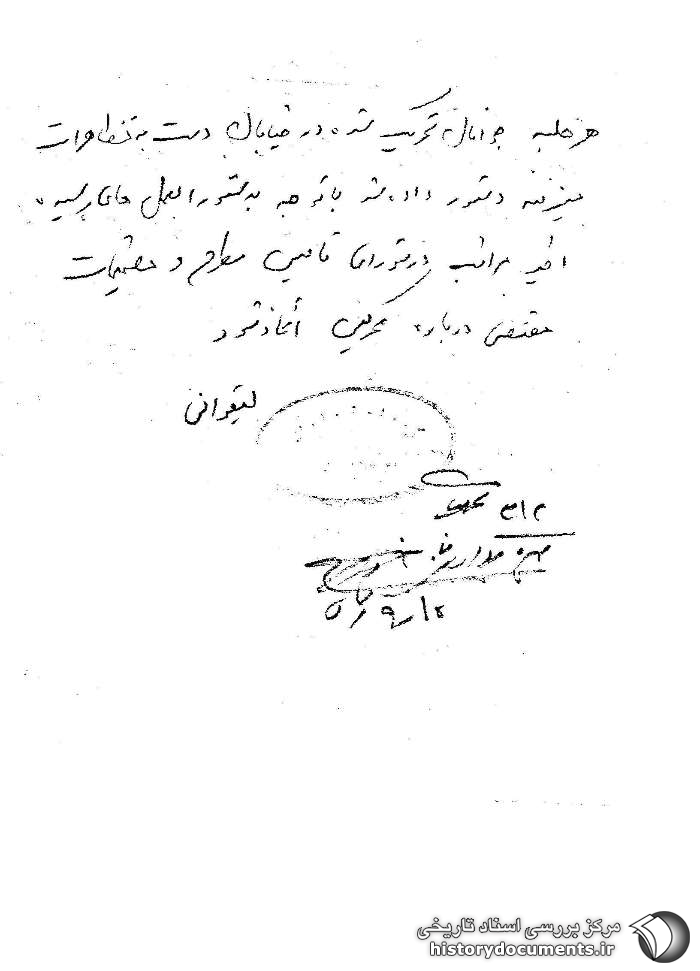 هر جلسه جوانان تحریک شده در خیابان دست به تظاهرات
میزنند دستور داده شد با توجه بدستورالعمل های رسیده
اخیر مراتب در شورای تامین مطرح و تصمیمات
مقتضی درباره محرکین اتخاذ شود
لیقوانی
۳۱۲
مرکز بررسی اسناد تاریخی
historydocuments.ir